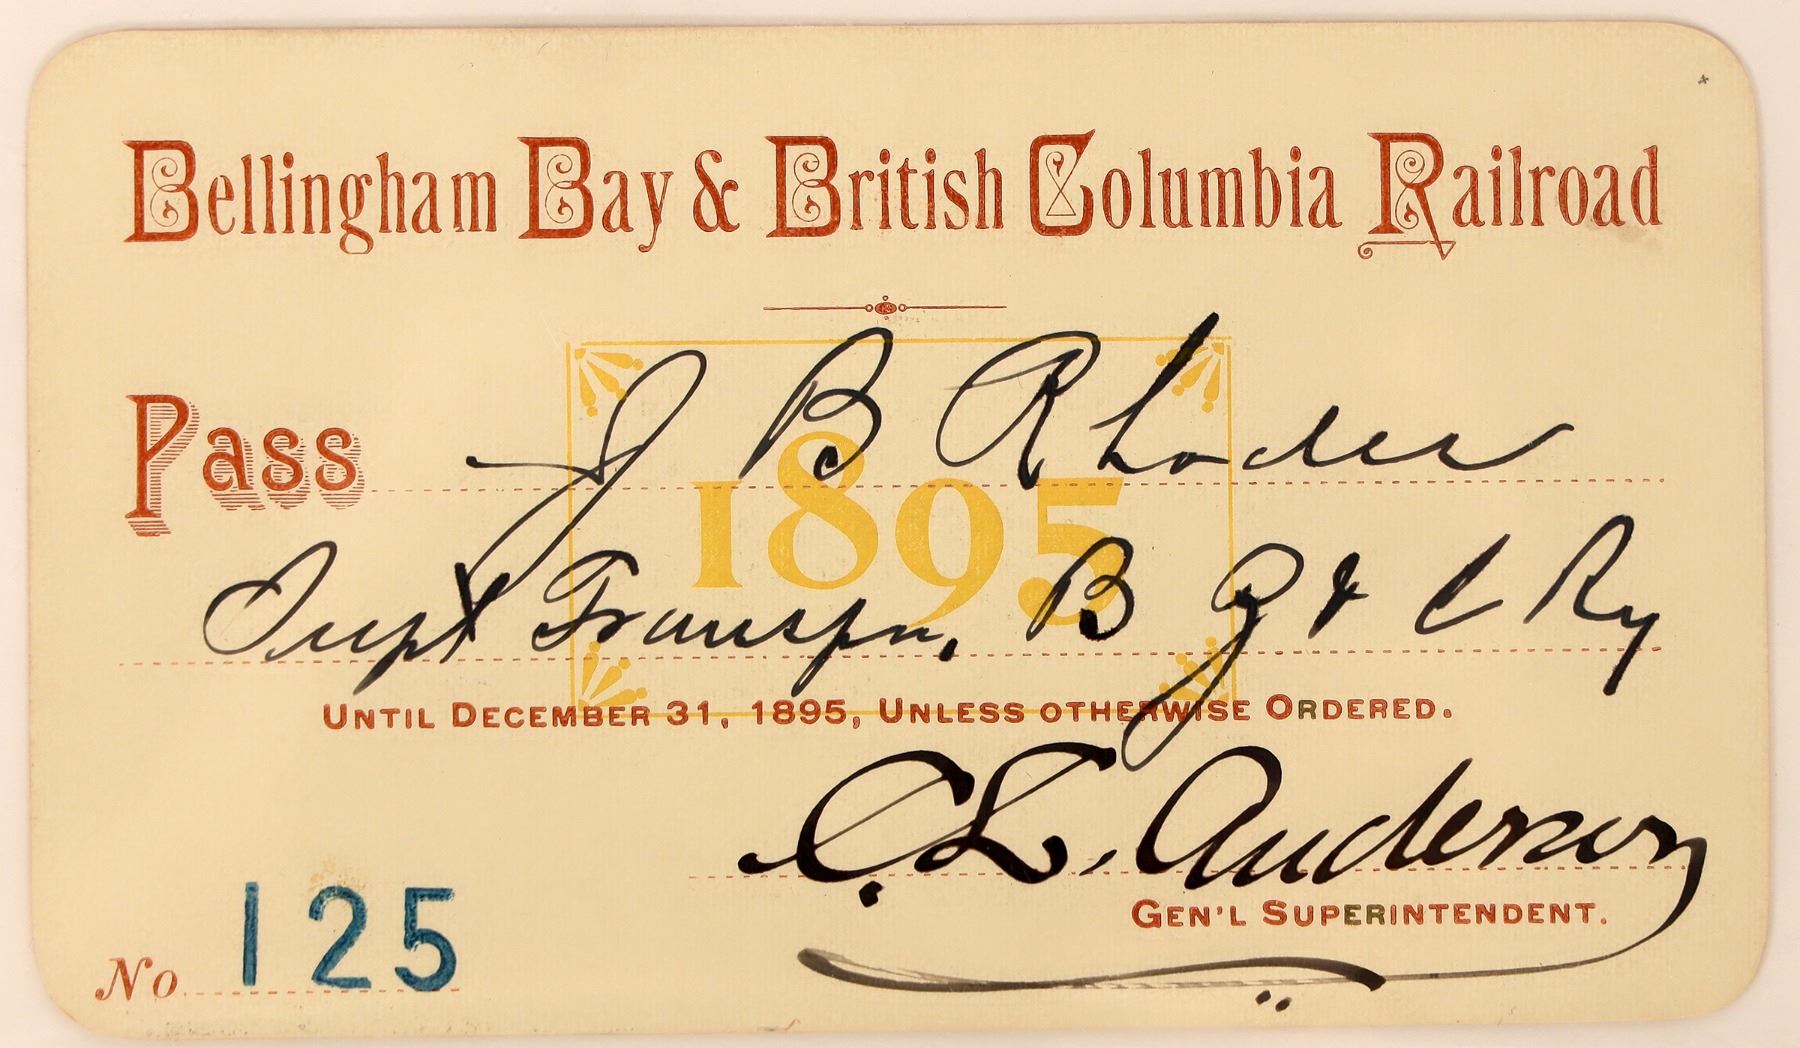 Bellingham Bay & British Columbia Railroad
Pass J B Rhodes
1895
Supt Transpn, B Z & C Ry
UNTIL DECEMBER 31, 1895, UNLESS OTHERWISE ORDERED.
C. L. Anderson
GEN'L SUPERINTENDENT.
No 125